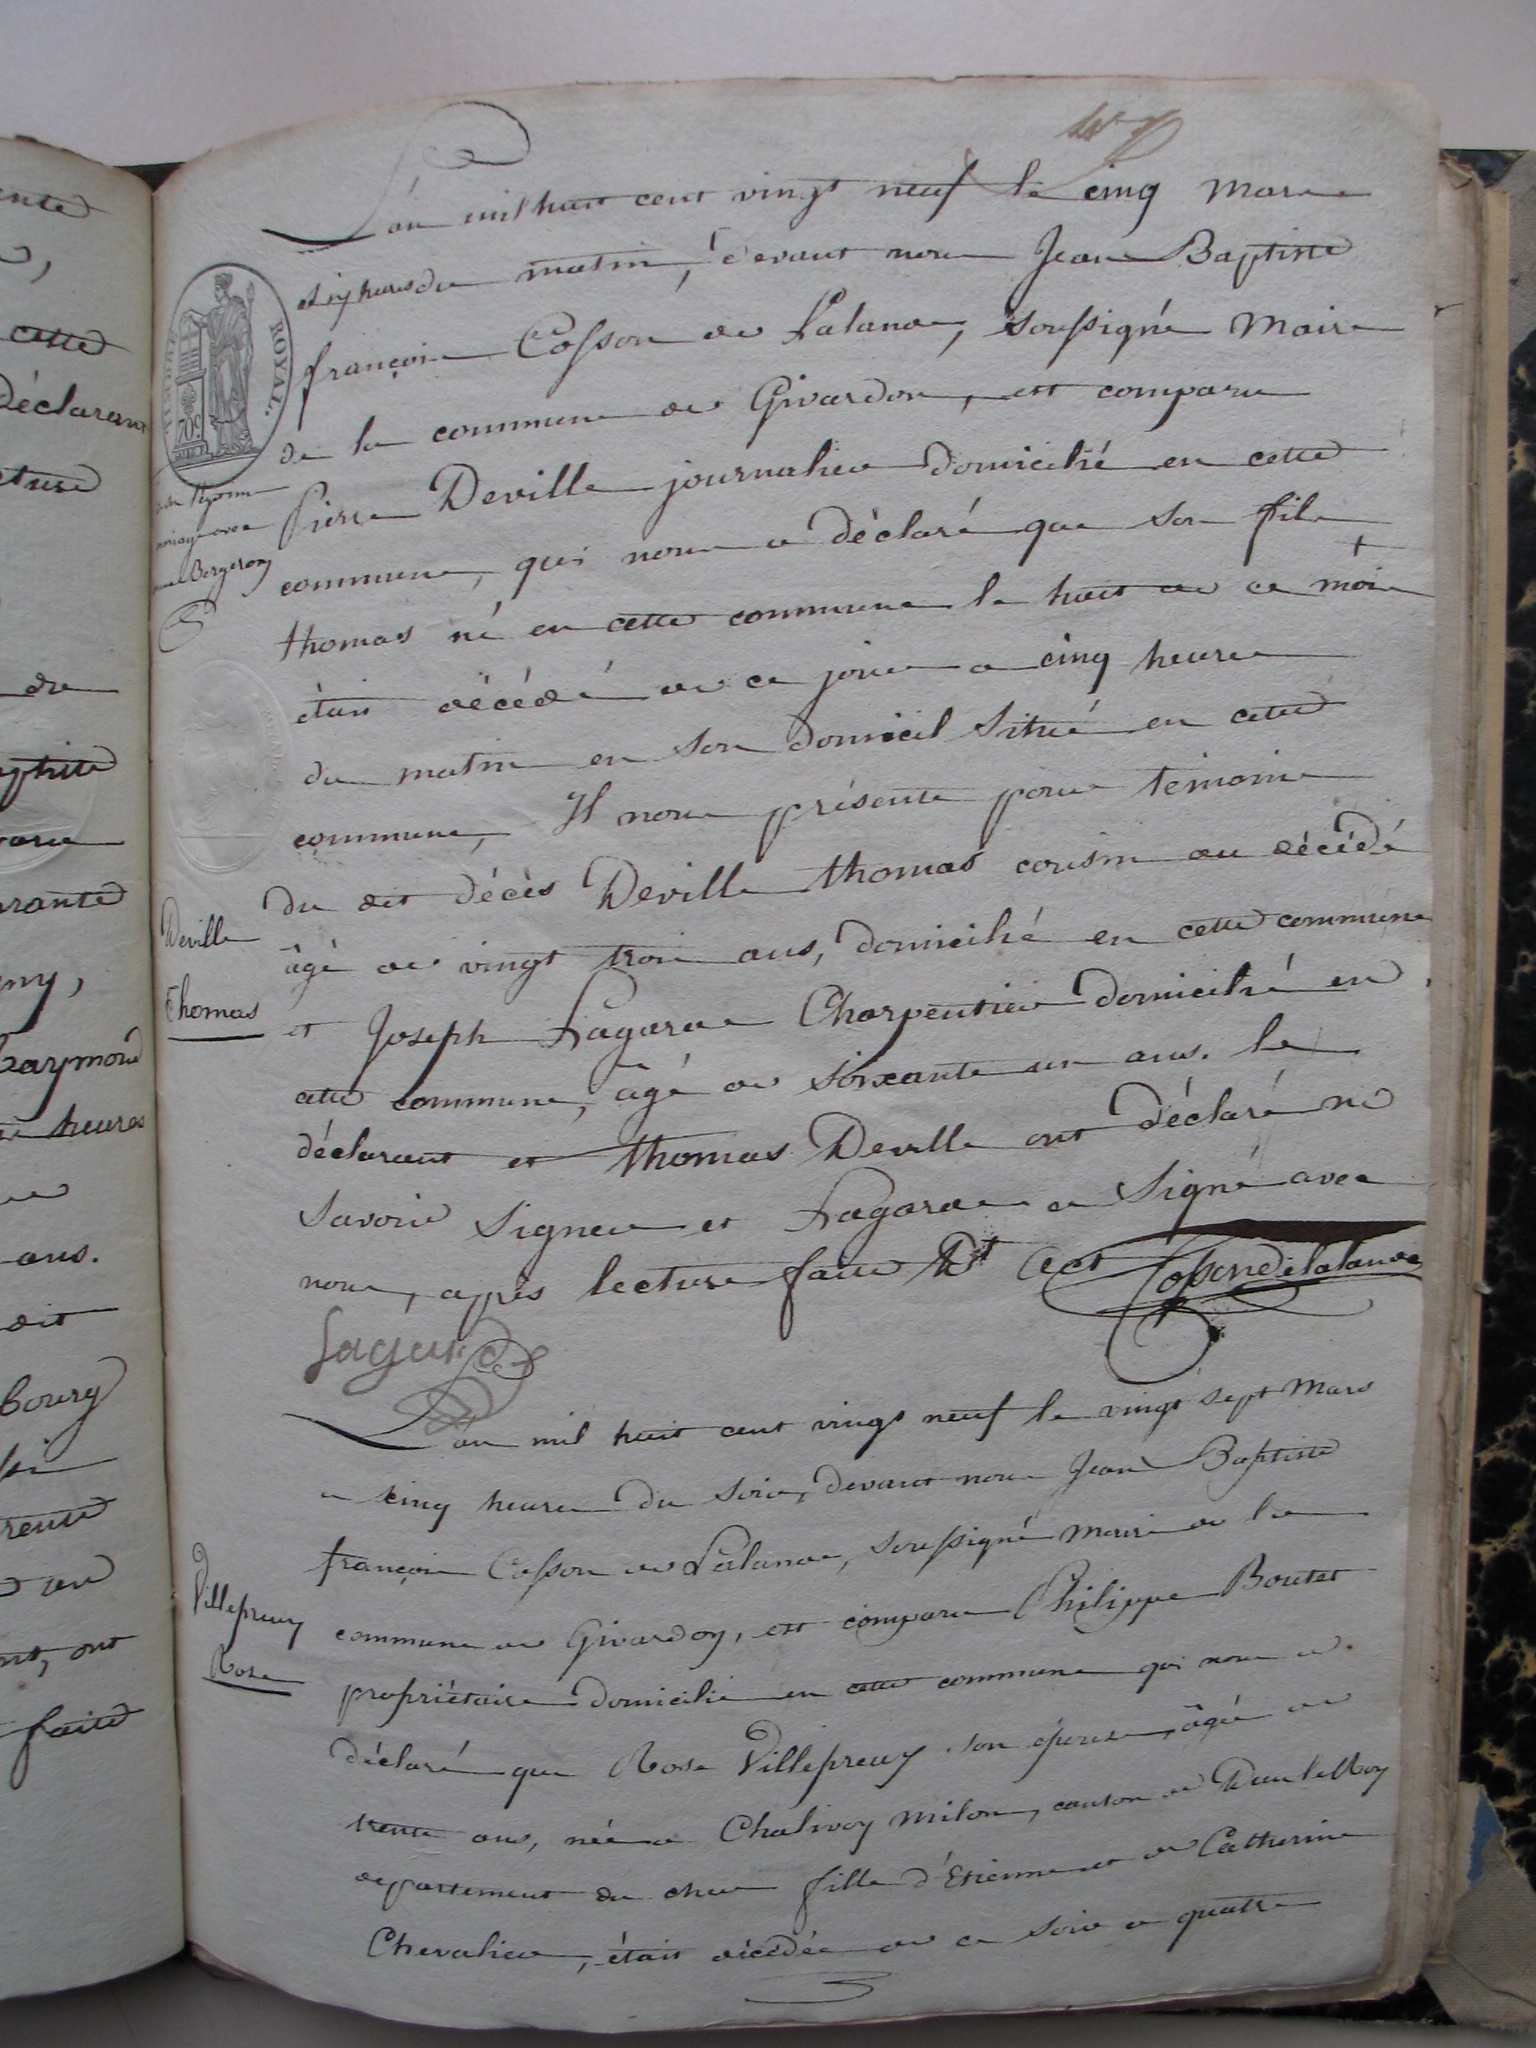 L'an mil huit cent vingt neuf le cinq mars
du matin, devant nous Jean Baptiste
françois Cosson de Lalande, soussigné Maire
de la commune de Givardon, est comparu
Pierre Deville journalier domicilié en cette
commune, qui nous a déclaré que son fils
thomas né en cette commune le huit de ce mois
étais décédé de ce jour a cinq heures
du matin en son domicil situé en cette
commune, Il nous présente pour témoins
du dit décès Deville thomas cousin du décédé
âgé de vingt trois ans, domicilié en cette commune
et Joseph Lagarde Charpentier domicilié en
cette commune, âgé de soixante un ans. le
déclarant et thomas Deville ont déclaré ne
savoir signer et Lagarde a signé avec
nous, après lecture faite Dt act Cosson de lalande
Lagarde
mariage avec
Bergeron
ROYAL.
70c.
Deville
Thomas
L'an mil huit cent vingt neuf le vingt sept Mars
a cinq heures du soir, devant nous Jean Baptiste
françois Cosson de Lalande, soussigné maire de la
commune de Givardon, est comparu Philippe Boutet
propriétaire domicilié en cette commune qui nous a
déclaré que Rose Villepreuy son épouse, âgée de
trente ans, née a Chalivoy milon, canton de Dun le Roy
departement du cher fille d'Etienne et de Catherine
Chevalier, étais décédée de ce soir a quatre
Villepreuy
Rose
ente
cette
Déclarant
cture
du
aptiste
paru
rante
gny,
Raymond
heures
ans.
dit
bourg
rente
en
nt, ont
faite